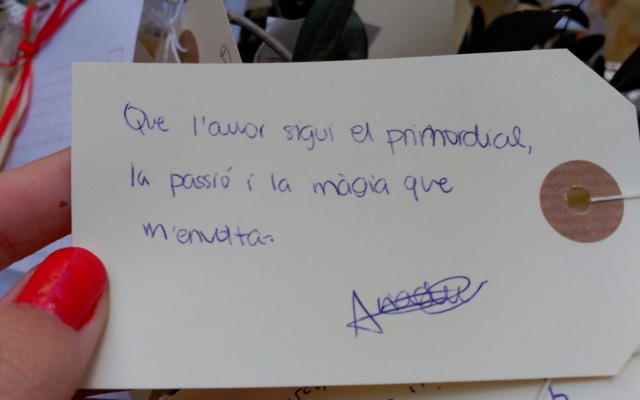 Que l'amor sigui el primordial,
la passió i la màgia que
m'envolta.